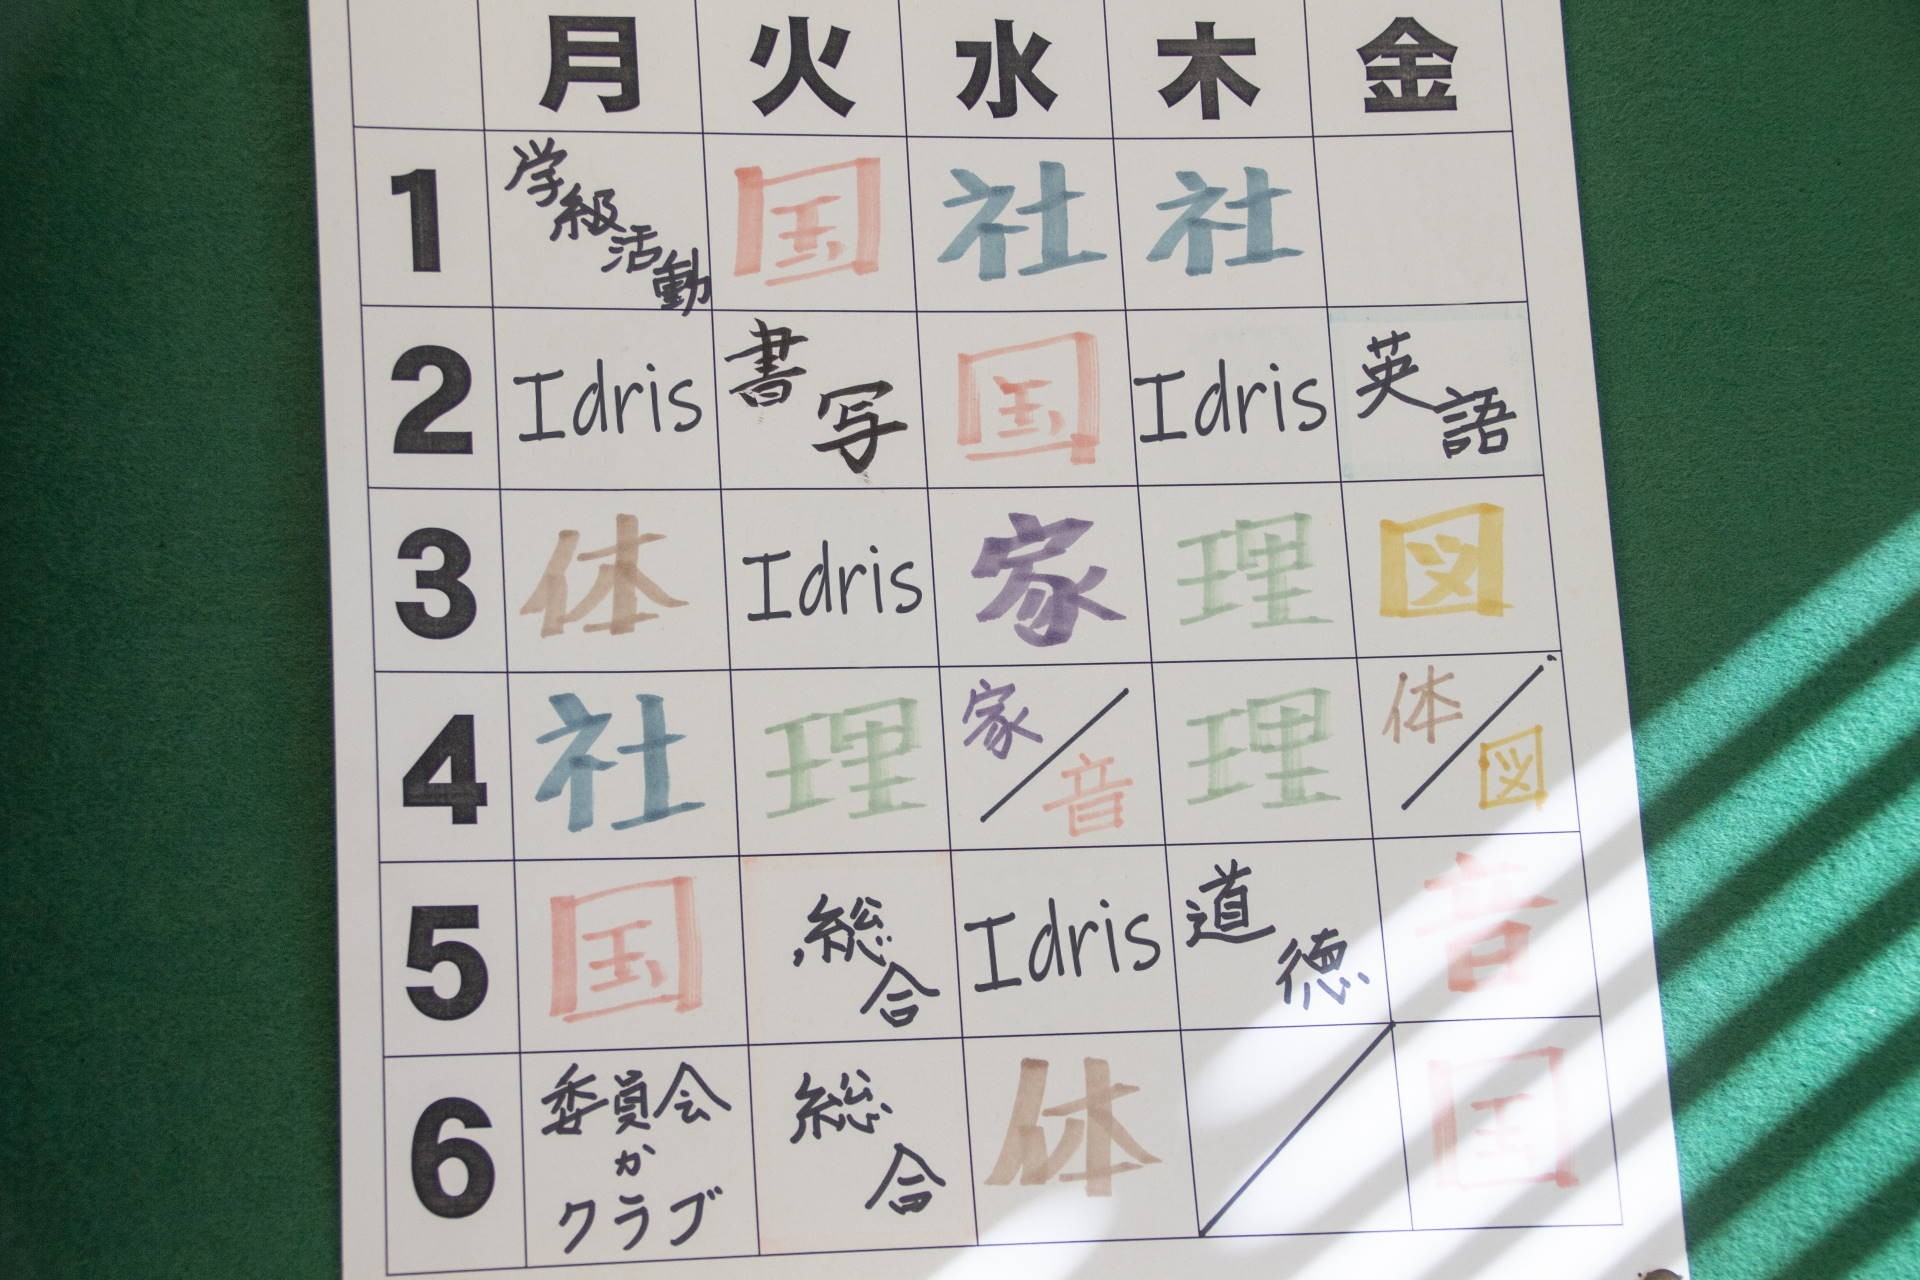 月 火 水 木 金
1 学級活動 国 社 社
2 Idris 書写 国 Idris 英語
3 体 Idris 家 理 図
4 社 理 家/音 理 体/図
5 国 総合 Idris 道徳 音
6 委員会かクラブ 総合 体 / 国